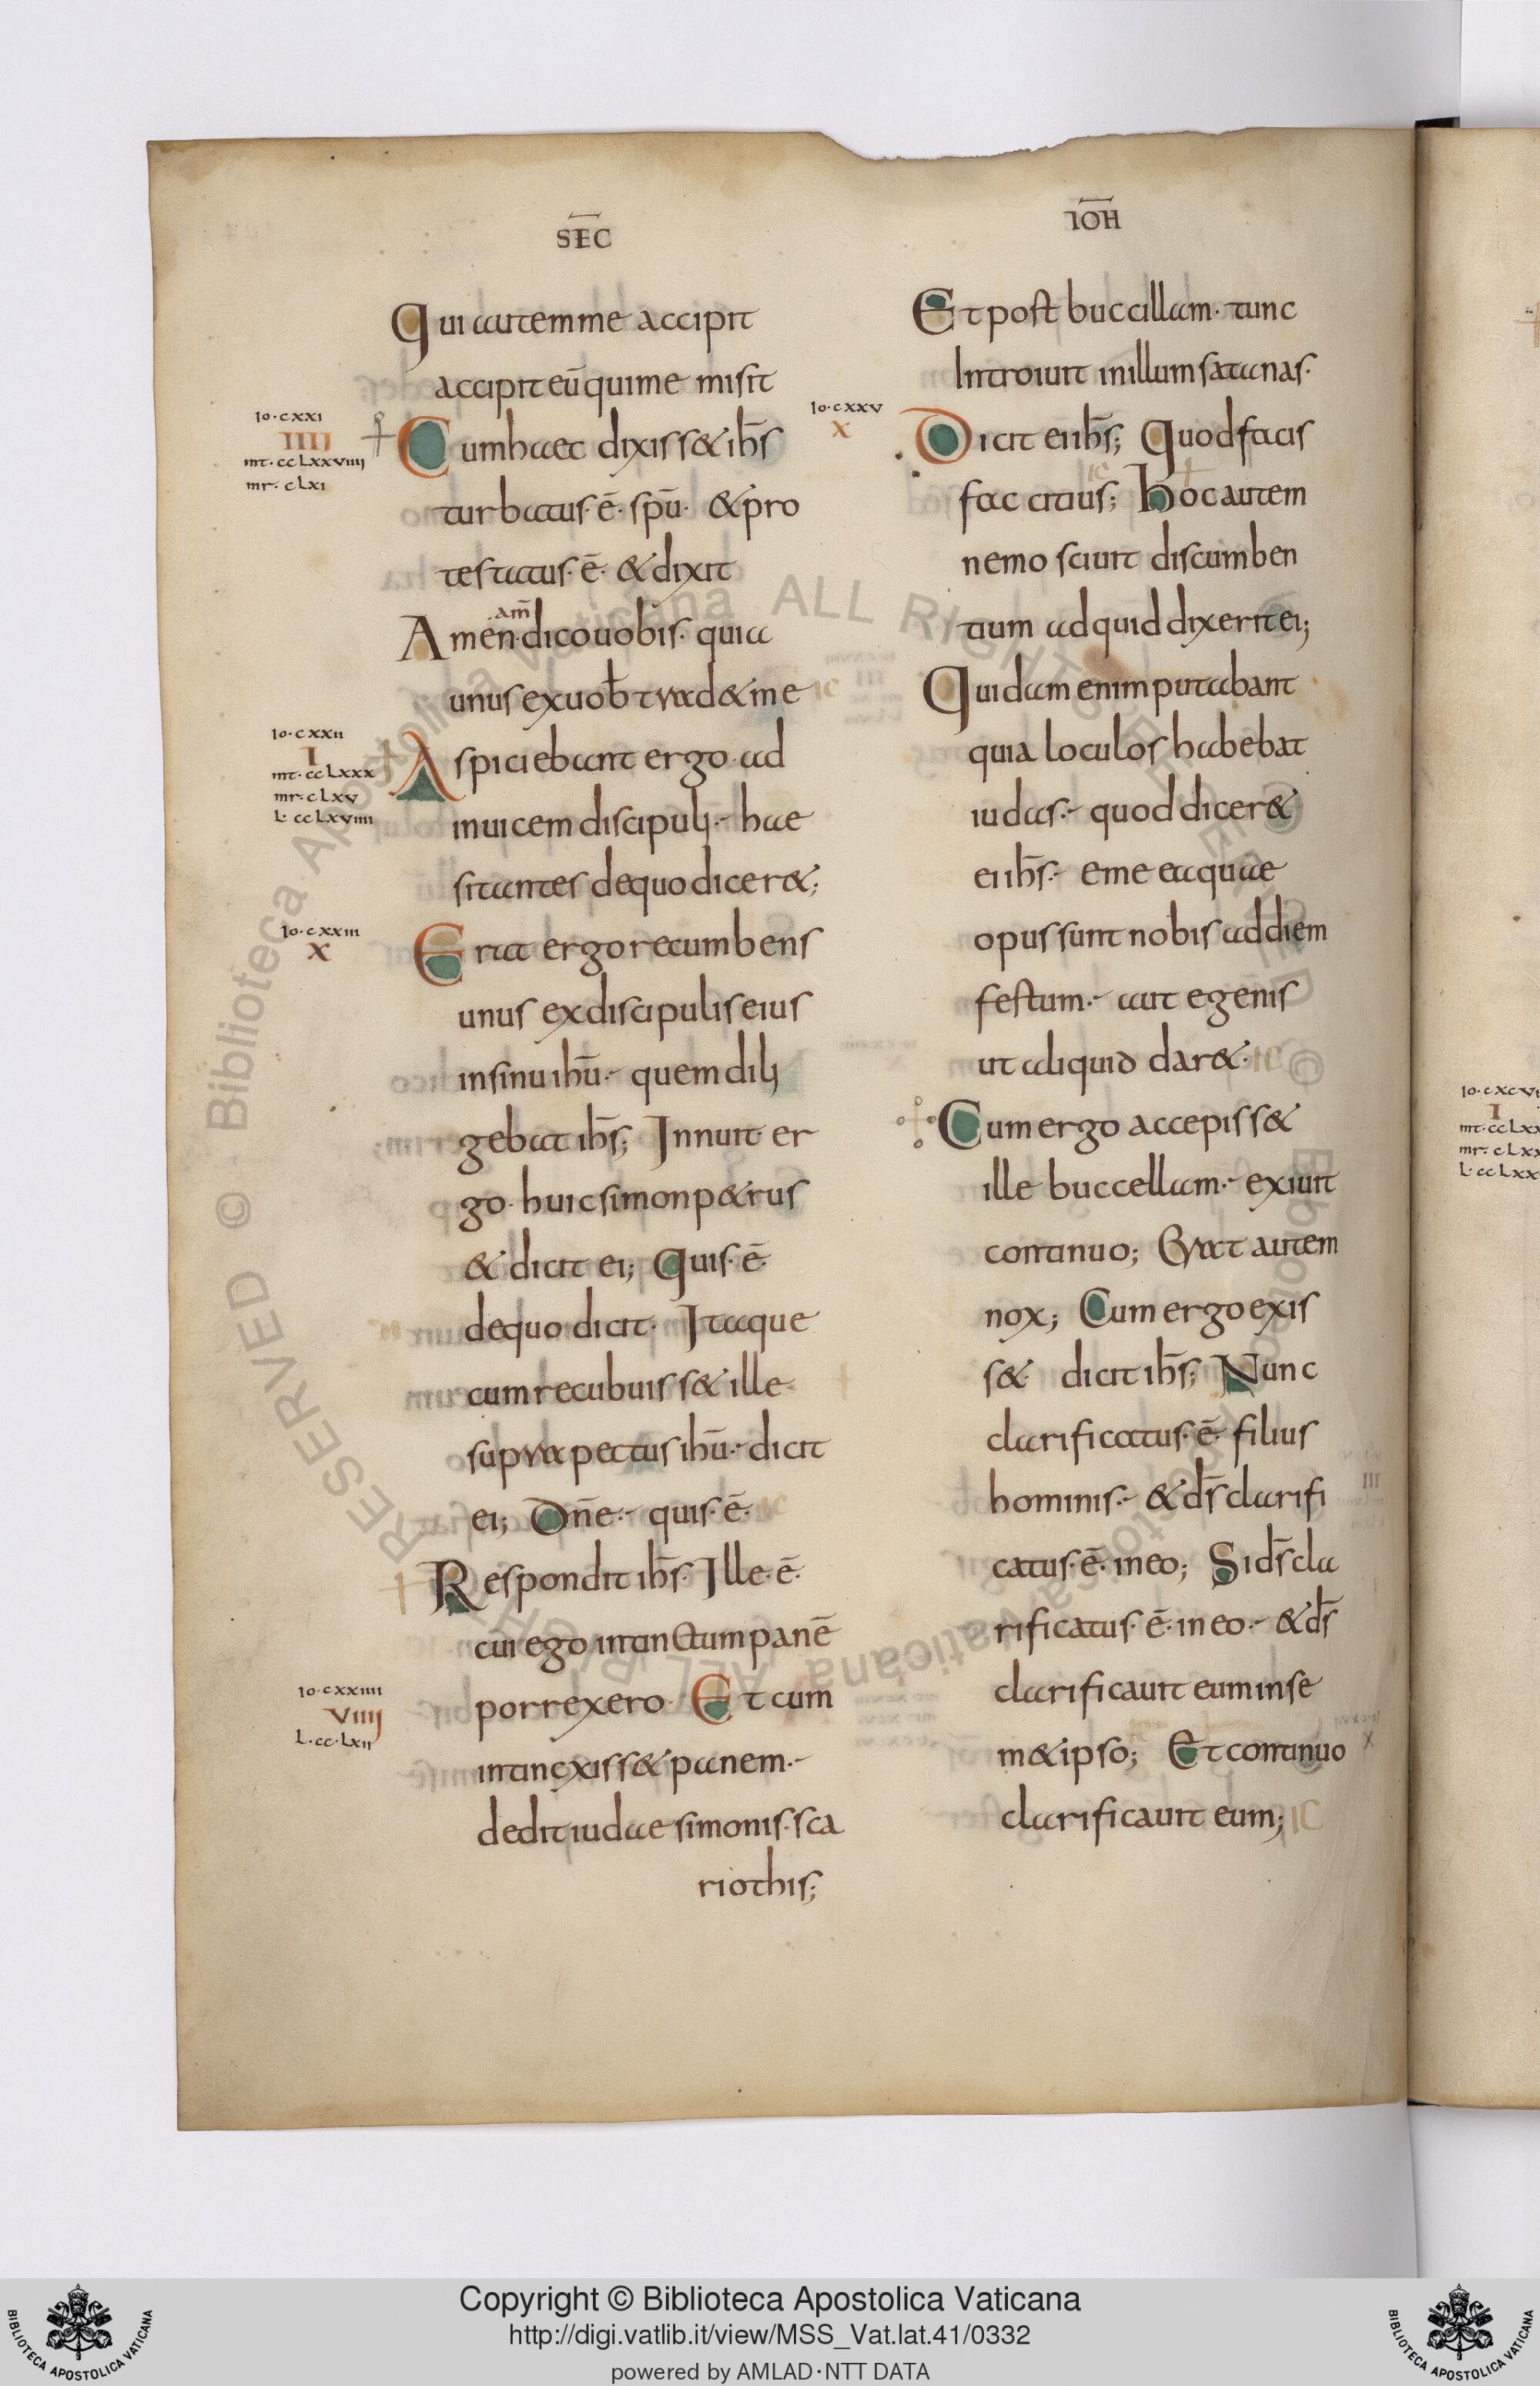 SEC̄
Qui autem me accipit
accipit eū qui me misit
Io·cxxi
IIII
mt·ccLxxviiii
mr·cLxi
Cum haec dixiss& ih̄s
turbatus·ē·sp̄u· & pro
testatus·ē· & dixit
am̄
Amen·dico uobis· quia
unus ex uob̄ trad& me
Io·cxxii
I
mt·ccLxxx
mr·cLxv
L·ccLxviiii
Aspiciebant ergo·ad
inuicem discipuli·- hae
sitantes de quo dicer&;
Io·cxxiii
X
Erat ergo recumbens
unus ex discipulis eius
in sinu ih̄u·- quem dili
gebat ih̄s; Innuit er
go·huic simon p&rus
& dicit ei; Quis·ē·
de quo dicit· Itaque
cum recubuiss& ille·
supra pectus ih̄u·- dicit
ei; Dn̄e·- quis·ē·
Respondit ih̄s· Ille·ē·
cui ego intinctum panē
Io·cxxiiii
VIIII
L·cc·Lxii
porrexero· Et cum
intinxiss& panem·-
dedit iudae simonis·sca
riothis;
IOH̄
Et post buccillam· tunc
Introiuit in illum satanas·
Io·cxxv
X
Dicit ei ih̄s; Quod facis
fac citius; Hoc autem
nemo sciuit discumben
tium ad quid dixerit ei;
Quidam enim putabant
quia loculos habebat
iudas·- quod dicer&
ei ih̄s·- eme ea quae
opus sunt nobis ad diem
festum·- aut egenis
ut aliquid dar&·
Cum ergo accepiss&
ille buccellam·- exiuit
continuo; Erat autem
nox; Cum ergo exis
s&· dicit ih̄s; Nunc
clarificatus·ē· filius
hominis·- & d̄s clarifi
catus·ē· in eo; Si d̄s cla
rificatus·ē· in eo·- & d̄s
clarificauit eum in se
m&ipso; Et continuo
clarificauit eum;
Io·cxcvi
I
mt·ccLxx
mr·cLxx
L·ccLxx
© Biblioteca Apostolica Vaticana ALL RIGHTS RESERVED
Copyright © Biblioteca Apostolica Vaticana
http://digi.vatlib.it/view/MSS_Vat.lat.41/0332
powered by AMLAD·NTT DATA
BIBLIOTECA APOSTOLICA VATICANA
BIBLIOTECA APOSTOLICA VATICANA